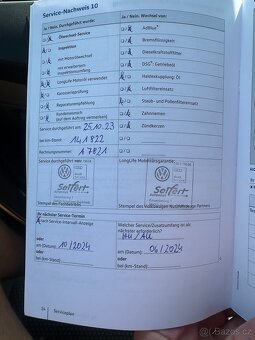 Service-Nachweis 10
Ja / Nein. Durchgeführt wurde:
Ölwechsel-Service
Inspektion
mit Motorölwechsel
mit erweitertem
Inspektionsumfang
LongLife Motoröl verwendet
Karosserieprüfung
Reparaturempfehlung
Kundenwunsch
(auf dem Auftrag vermerken)
Service durchgeführt am: 25.10.23
bei km-Stand: 141 822
Rechnungsnummer: 17821
Service durchgeführt von:
Seifert
Stempel des Fachbetriebs
Ihr nächster Service-Termin
nach Service-Intervall-Anzeige
oder
am (Datum): 10/2024
oder
bei (km-Stand):
Ja / Nein. Wechsel von:
AdBlue
Bremsflüssigkeit
Dieselkraftstofffilter
DSG®-Getriebeöl
Haldexkupplung: Öl
Luftfiltereinsatz
Staub- und Pollenfiltereinsatz
Zahnriemen
Zündkerzen
LongLife Mobilitätsgarantie:
Seifert
Stempel des Volkswagen Nutzfahrzeuge Partners
Welcher Service/Zusatzumfang ist als
nächster erforderlich?
HU / AU
am (Datum): 04/2024
oder
bei (km-Stand):
54
Serviceplan